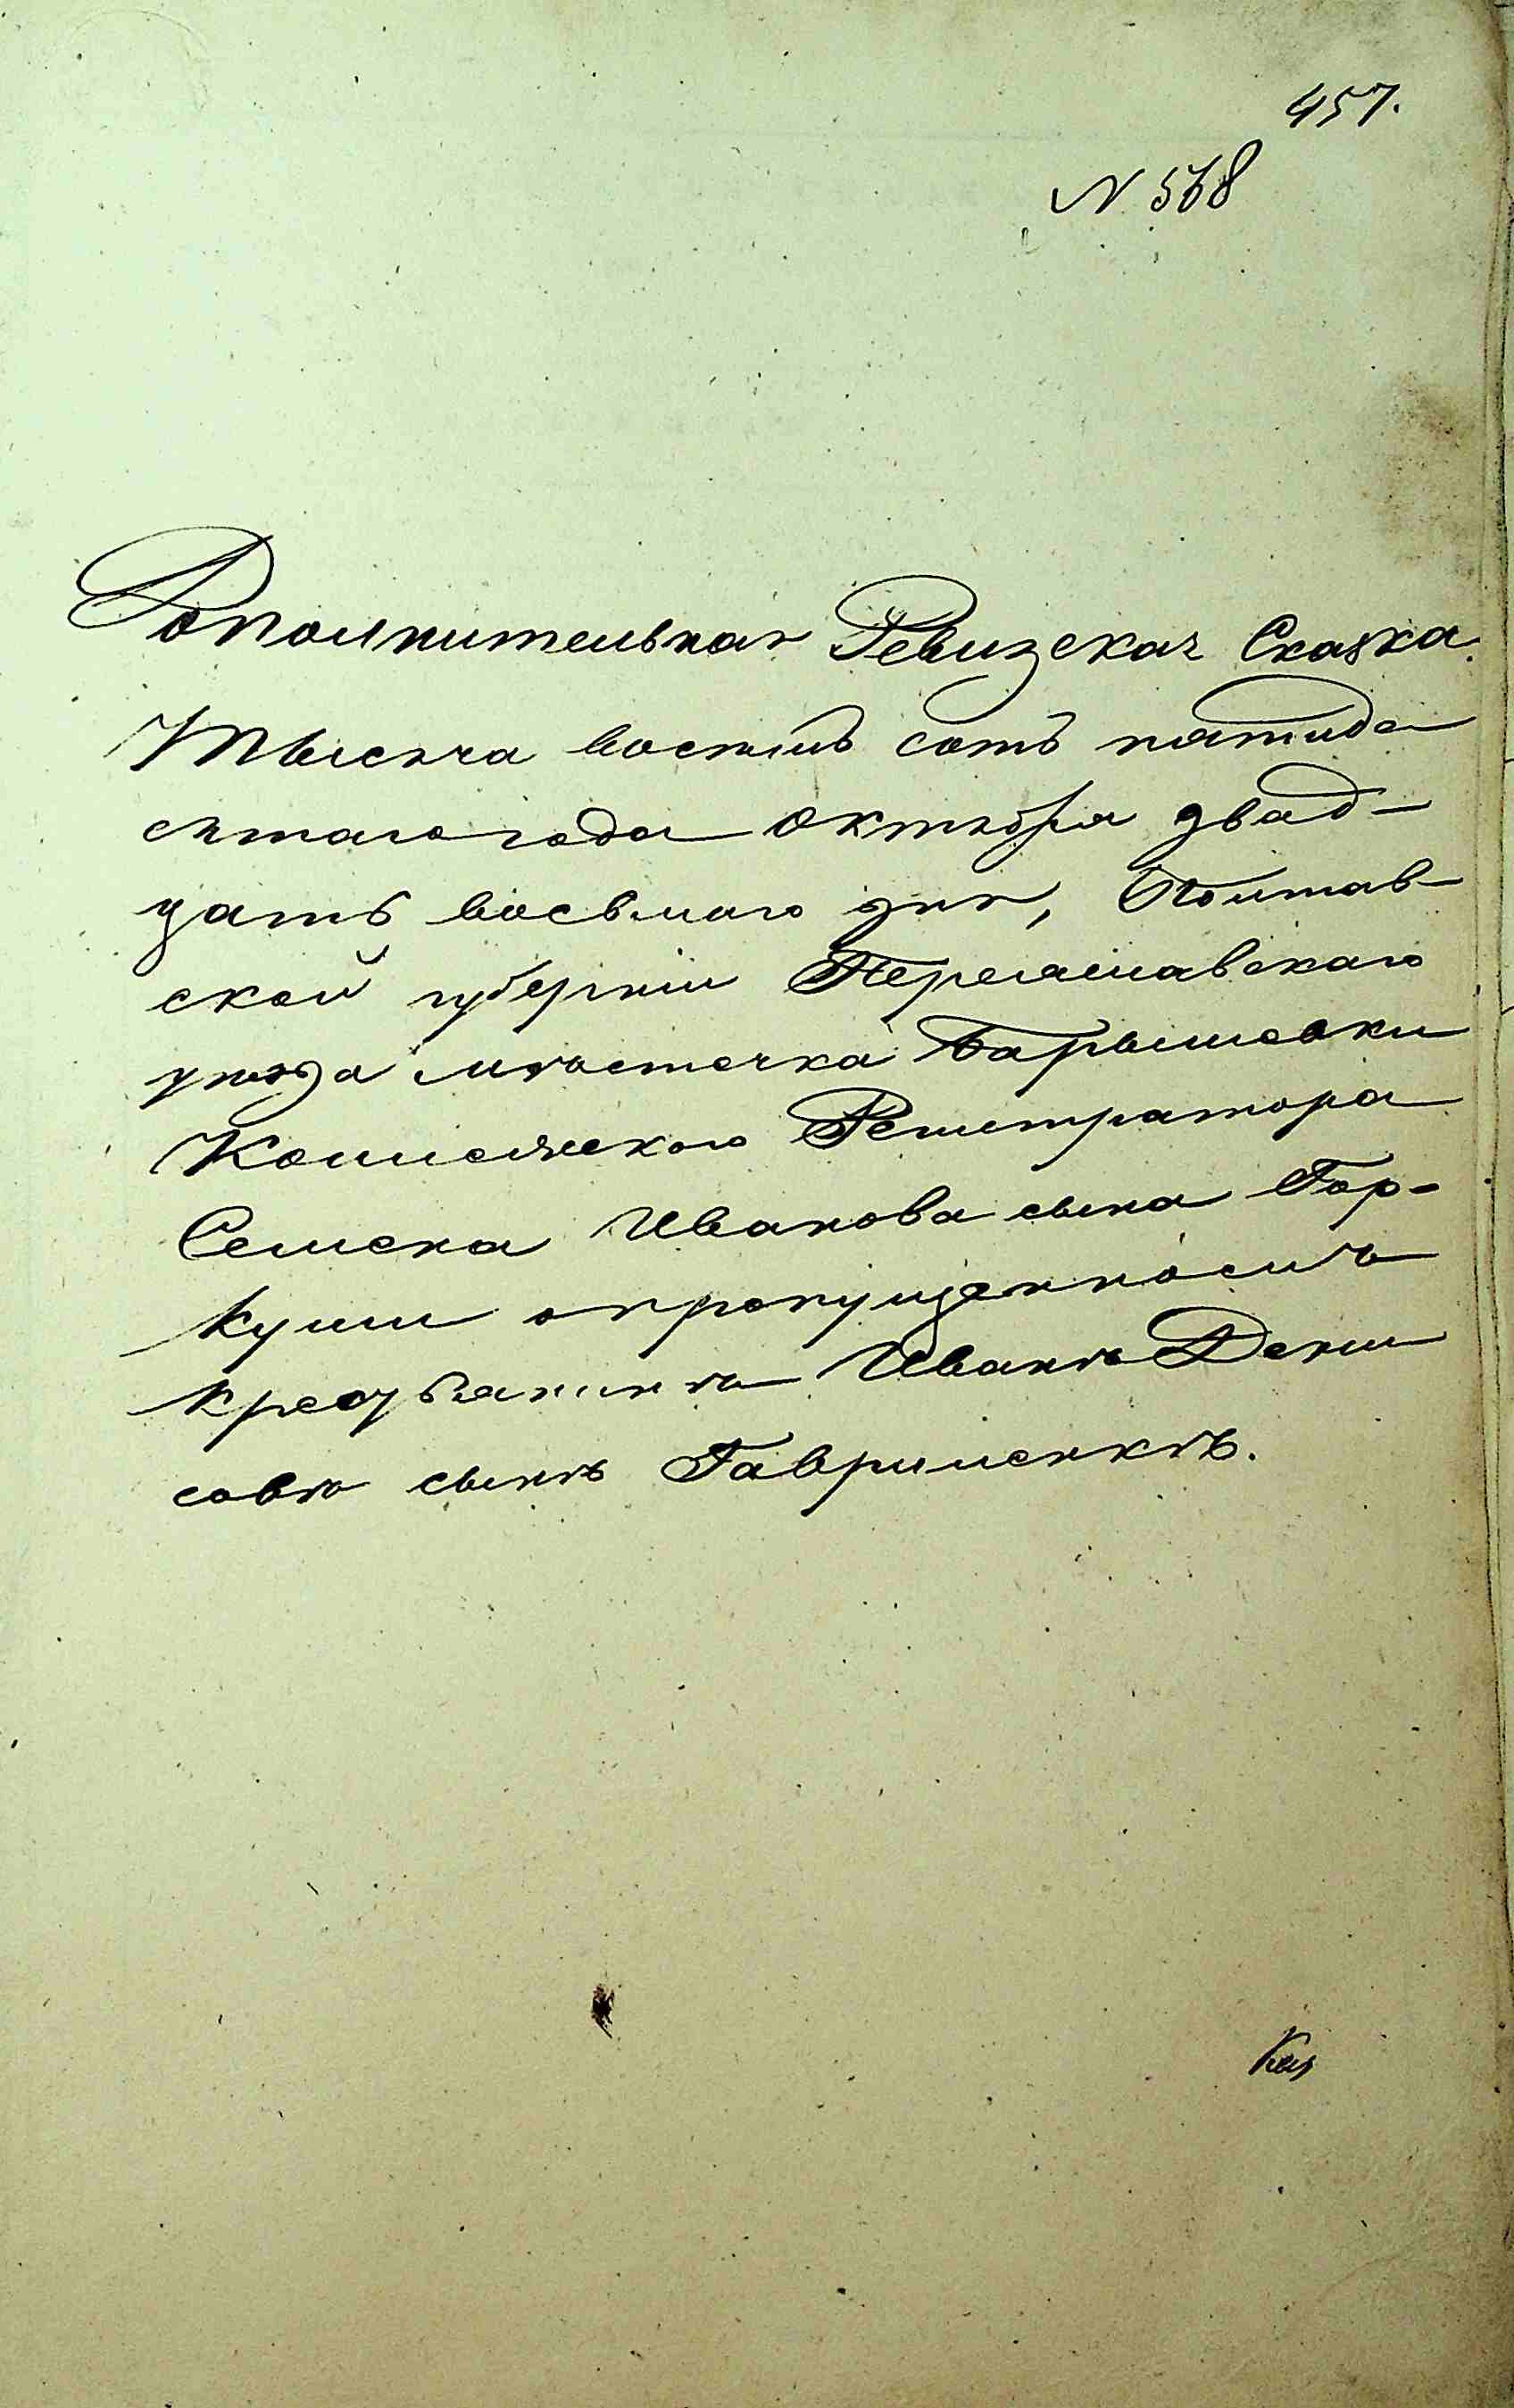 457.
N 568
Дополнительная Ревизская Сказка.
Тысяча восемь сотъ пятиде
сятаго года Октября двад-
цать восьмаго дня, Полтав-
ской губерніи Переяславскаго
уѣзда мѣстечка Барышевки
Коллежскаго Регистратора
Семена Иванова сына Гор-
куши о пропущенномъ
крестьянинѣ Иванѣ Дени
совѣ сынѣ Гавриленкѣ.